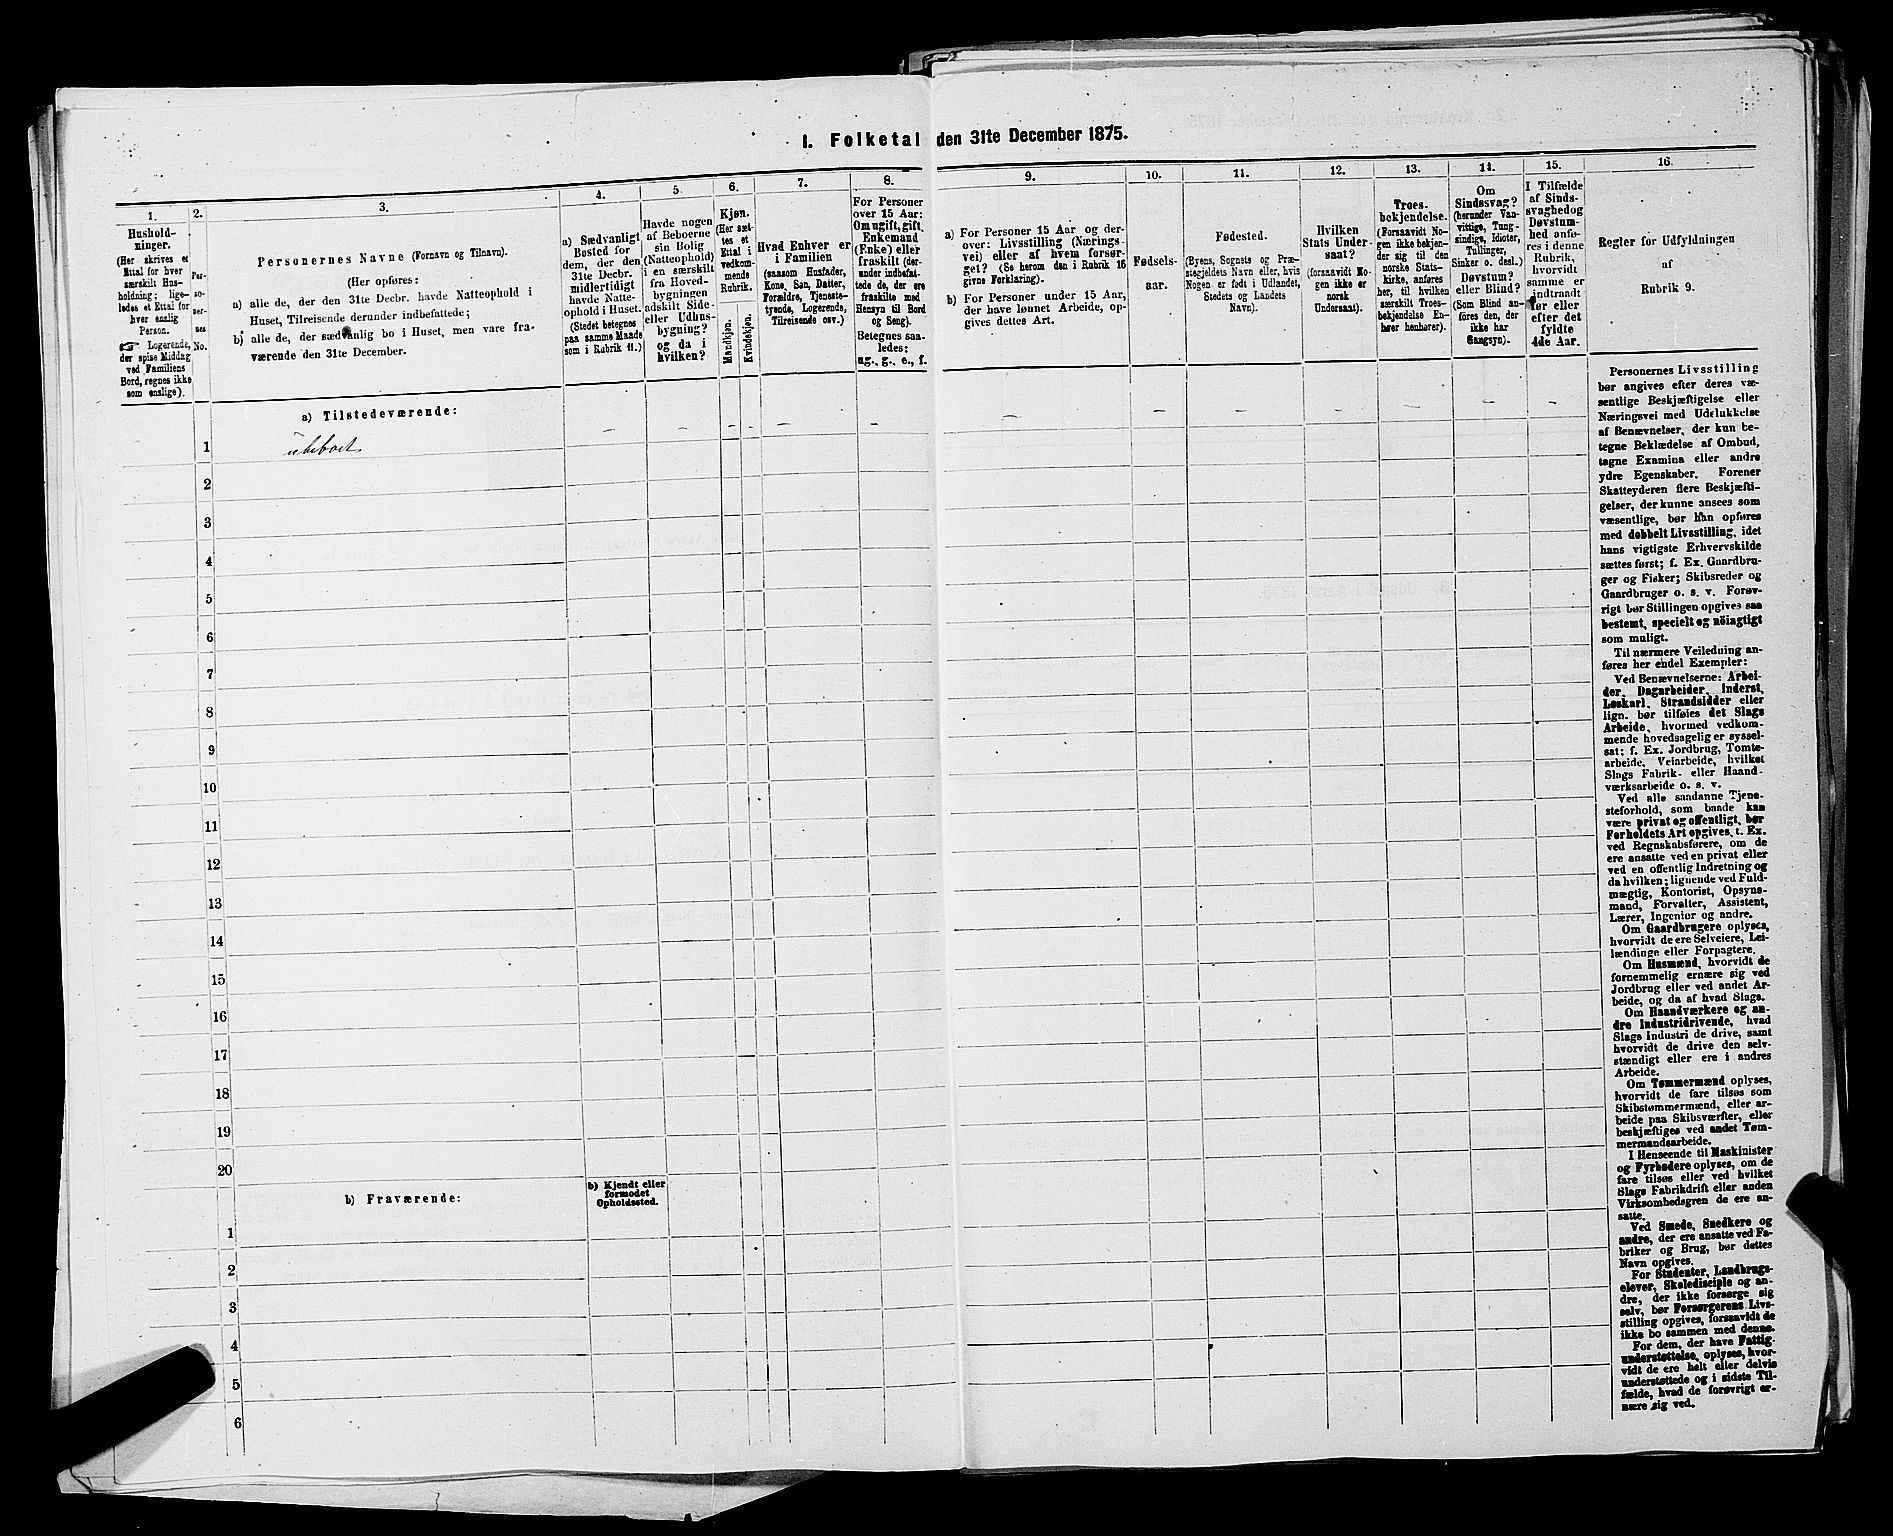 I. Folketal den 31te December 1875.
1.
Hushold-
ninger.
(Her skrives et
Ettal for hver
særskilt Hus-
holdning; lige-
ledes et Ettal for
hver enslig
Person.
☞ Logerende,
der spise Middag
ved Familiens
Bord, regnes ikke
som enslige).
2.
Per-
so-
ner-
nes
No.
3.
Personernes Navne (Fornavn og Tilnavn).
(Her opføres:
a) alle de, der den 31te Decbr. havde Natteophold i
Huset, Tilreisende derunder indbefattede;
b) alle de, der sædvanlig bo i Huset, men vare fra-
værende den 31te December.
4.
a) Sædvanligt
Bosted for
dem, der den
31te Decbr.
midlertidigt
havde Natte-
ophold i Huset.
(Stedet betegnes
paa samme Maade
som i Rubrik 11.)
5.
Havde nogen
af Beboerne
sin Bolig
(Natteophold)
i en særskilt
fra Hoved-
bygningen
adskilt Side-
eller Udhus-
bygning?
og da i
hvilken?
6.
Kjøn.
(Her sæt-
tes et
Ettal i
vedkom-
mende
Rubrik.
Mandkjøn.
Kvindekjøn.
7.
Hvad Enhver er
i Familien
(saasom Husfader,
Kone, Søn, Datter,
Forældre, Tjeneste-
tyende, Logerende,
Tilreisende osv.)
8.
For Personer
over 15 Aar:
Om ugift, gift,
Enkemand
(Enke) eller
fraskilt (der-
under indbefat-
tede de, der ere
fraskilte med
Hensyn til Bord
og Seng).
Betegnes saa-
ledes:
ug., g., e., f.
9.
a) For Personer 15 Aar og der-
over: Livsstilling (Nærings-
vei) eller af hvem forsør-
get? (Se herom den i Rubrik 16
givne Forklaring).
b) For Personer under 15 Aar,
der have lønnet Arbeide, op-
gives dettes Art.
10.
Fødsels-
aar.
11.
Fødested.
(Byens, Sognets og Præ-
stegjeldets Navn eller, hvis
Nogen er født i Udlandet,
Stedets og Landets
Navn).
12.
Hvilken
Stats Under-
saat?
(forsaavidt No-
gen ikke er
norsk
Undersaat).
13.
Troes-
bekjendelse.
(Forsaavidt No-
gen ikke bekjen-
der sig til den
norske Stats-
kirke, anføres
her, til hvilken
særskilt Troes-
bekjendelse En-
hver henhører).
14.
Om
Sindssvag?
(herunder Van-
vittige, Tung-
sindige, Idioter,
Tullinger,
Sinker o. desl.)
Døvstum?
eller Blind?
(Som Blind an-
føres den, der
ikke har
Gangsyn).
15.
I Tilfælde
af Sinds-
svaghed og
Døvstum-
hed anfø-
res i denne
Rubrik,
hvorvidt
samme er
indtraadt
før eller
efter det
fyldte
4de Aar.
16.
Regler for Udfyldningen
af
Rubrik 9.
a) Tilstedeværende:
1 ubeboet – – – – – – – – – – – –
2
3
4
5
6
7
8
9
10
11
12
13
14
15
16
17
18
19
20
b) Fraværende:
b) Kjendt eller
formodet
Opholdssted.
1
2
3
4
5
6
Personernes Livsstilling
bør angives efter deres væ-
sentlige Beskjæftigelse eller
Næringsvei med Udelukkelse
af Benævnelser, der kun be-
tegne Beklædelse af Ombud,
tagne Examina eller andre
ydre Egenskaber. Forener
Skatteyderen flere Beskjæfti-
gelser, der kunne ansees som
væsentlige, bør han opføres
med dobbelt Livsstilling, idet
hans vigtigste Erhvervskilde
sættes først; f. Ex. Gaardbru-
ger og Fisker; Skibsreder og
Gaardbruger o. s. v. Forøv-
rigt bør Stillingen opgives saa
bestemt, specielt og nöiagtigt
som muligt.
Til nærmere Veiledning an-
føres her endel Exempler:
Ved Benævnelserne: Arbei-
der, Dagarbeider, Inderst,
Løskarl, Strandsidder eller
lign. bør tilføies det Slags
Arbeide, hvormed vedkom-
mende hovedsagelig er syssel-
sat; f. Ex. Jordbrug, Tomte-
arbeide, Veiarbeide, hvilket
Slags Fabrik- eller Haand-
værksarbeide o. s. v.
Ved alle saadanne Tjene-
steforhold, som baade kan
være privat og offentligt, bør
Forholdets Art opgives, t. Ex.
ved Regnskabsførere, om de
ere ansatte ved en privat eller
ved en offentlig Indretning og
da hvilken; lignende ved Fuld-
mægtig, Kontorist, Opsyns-
mand, Forvalter, Assistent,
Lærer, Ingeniør og andre.
Om Gaardbrugere oplyses,
hvorvidt de ere Selveiere, Lei-
lændinge eller Forpagtere.
Om Husmænd, hvorvidt de
fornemmelig ernære sig ved
Jordbrug eller ved andet Ar-
beide, og da af hvad Slags.
Om Haandværkere og an-
dre Industridrivende, hvad
Slags Industri de drive, samt
hvorvidt de drive den selv-
stændigt eller ere i andres
Arbeide.
Om Tømmermænd oplyses,
hvorvidt de fare tilsøs som
Skibstømmermænd, eller ar-
beide paa Skibsværfter, eller
beskjæftiges ved andet Tøm-
mermandsarbeide.
I Henseende til Maskinister
og Fyrbødere oplyses, om de
fare tilsøs eller ved hvilket
Slags Fabrikdrift eller anden
Virksomhedsgren de ere an-
satte.
Ved Smede, Snedkere og
andre, der ere ansatte ved Fa-
briker og Brug, bør dettes
Navn opgives.
For Studenter, Landbrugs-
elever, Skoledisciple og an-
dre, der ikke forsørge sig
selv, bør Forsørgerens Livs-
stilling opgives, forsaavidt de
ikke bo sammen med denne.
For dem, der have Fattig-
understøttelse, oplyses, hvor-
vidt de ere helt eller delvis
understøttede og i sidste Til-
fælde, hvad de forøvrigt er-
nære sig ved.